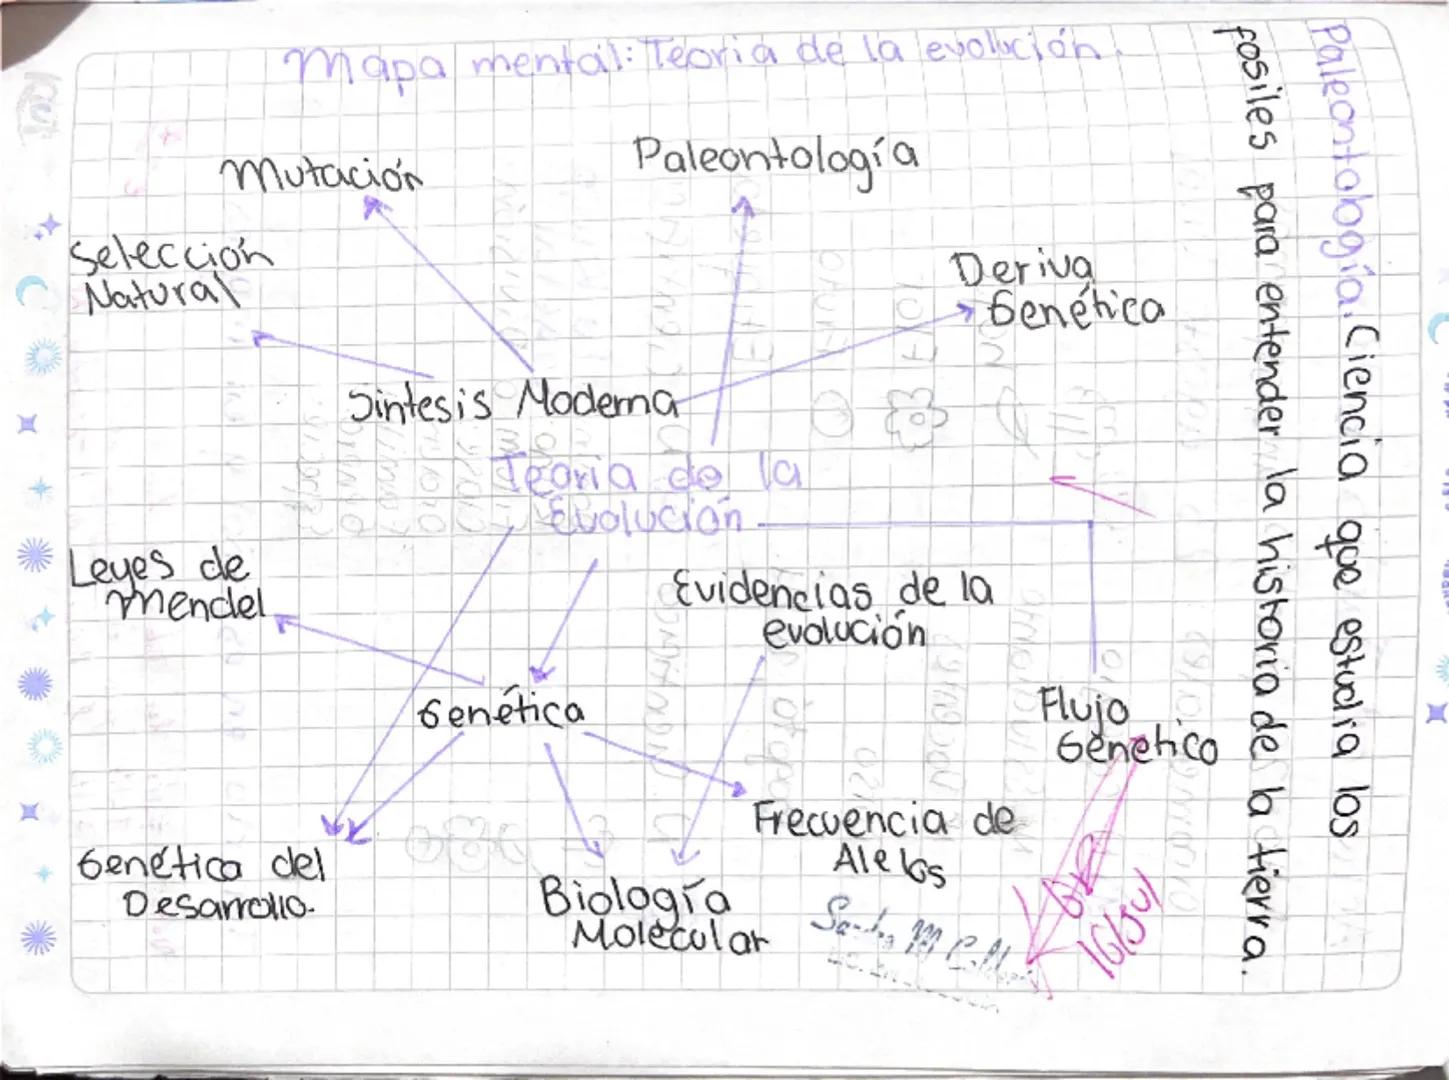 Mapa mental: Teoria de la evolución.
Mutación
Paleontología
Selección
Natural
Deriva
Genética
Sintesis Moderna
Teoria de la
Evolución
Leyes de
mendel
Evidencias de la
evolución
Genética
Flujo
Genetico
Frecuencia de
Alelos
Genética del
Desarrollo.
Biología
Molecular
16/Jul
Paleontología: Ciencia que estudia los
fosiles para entender la historia de la tierra.